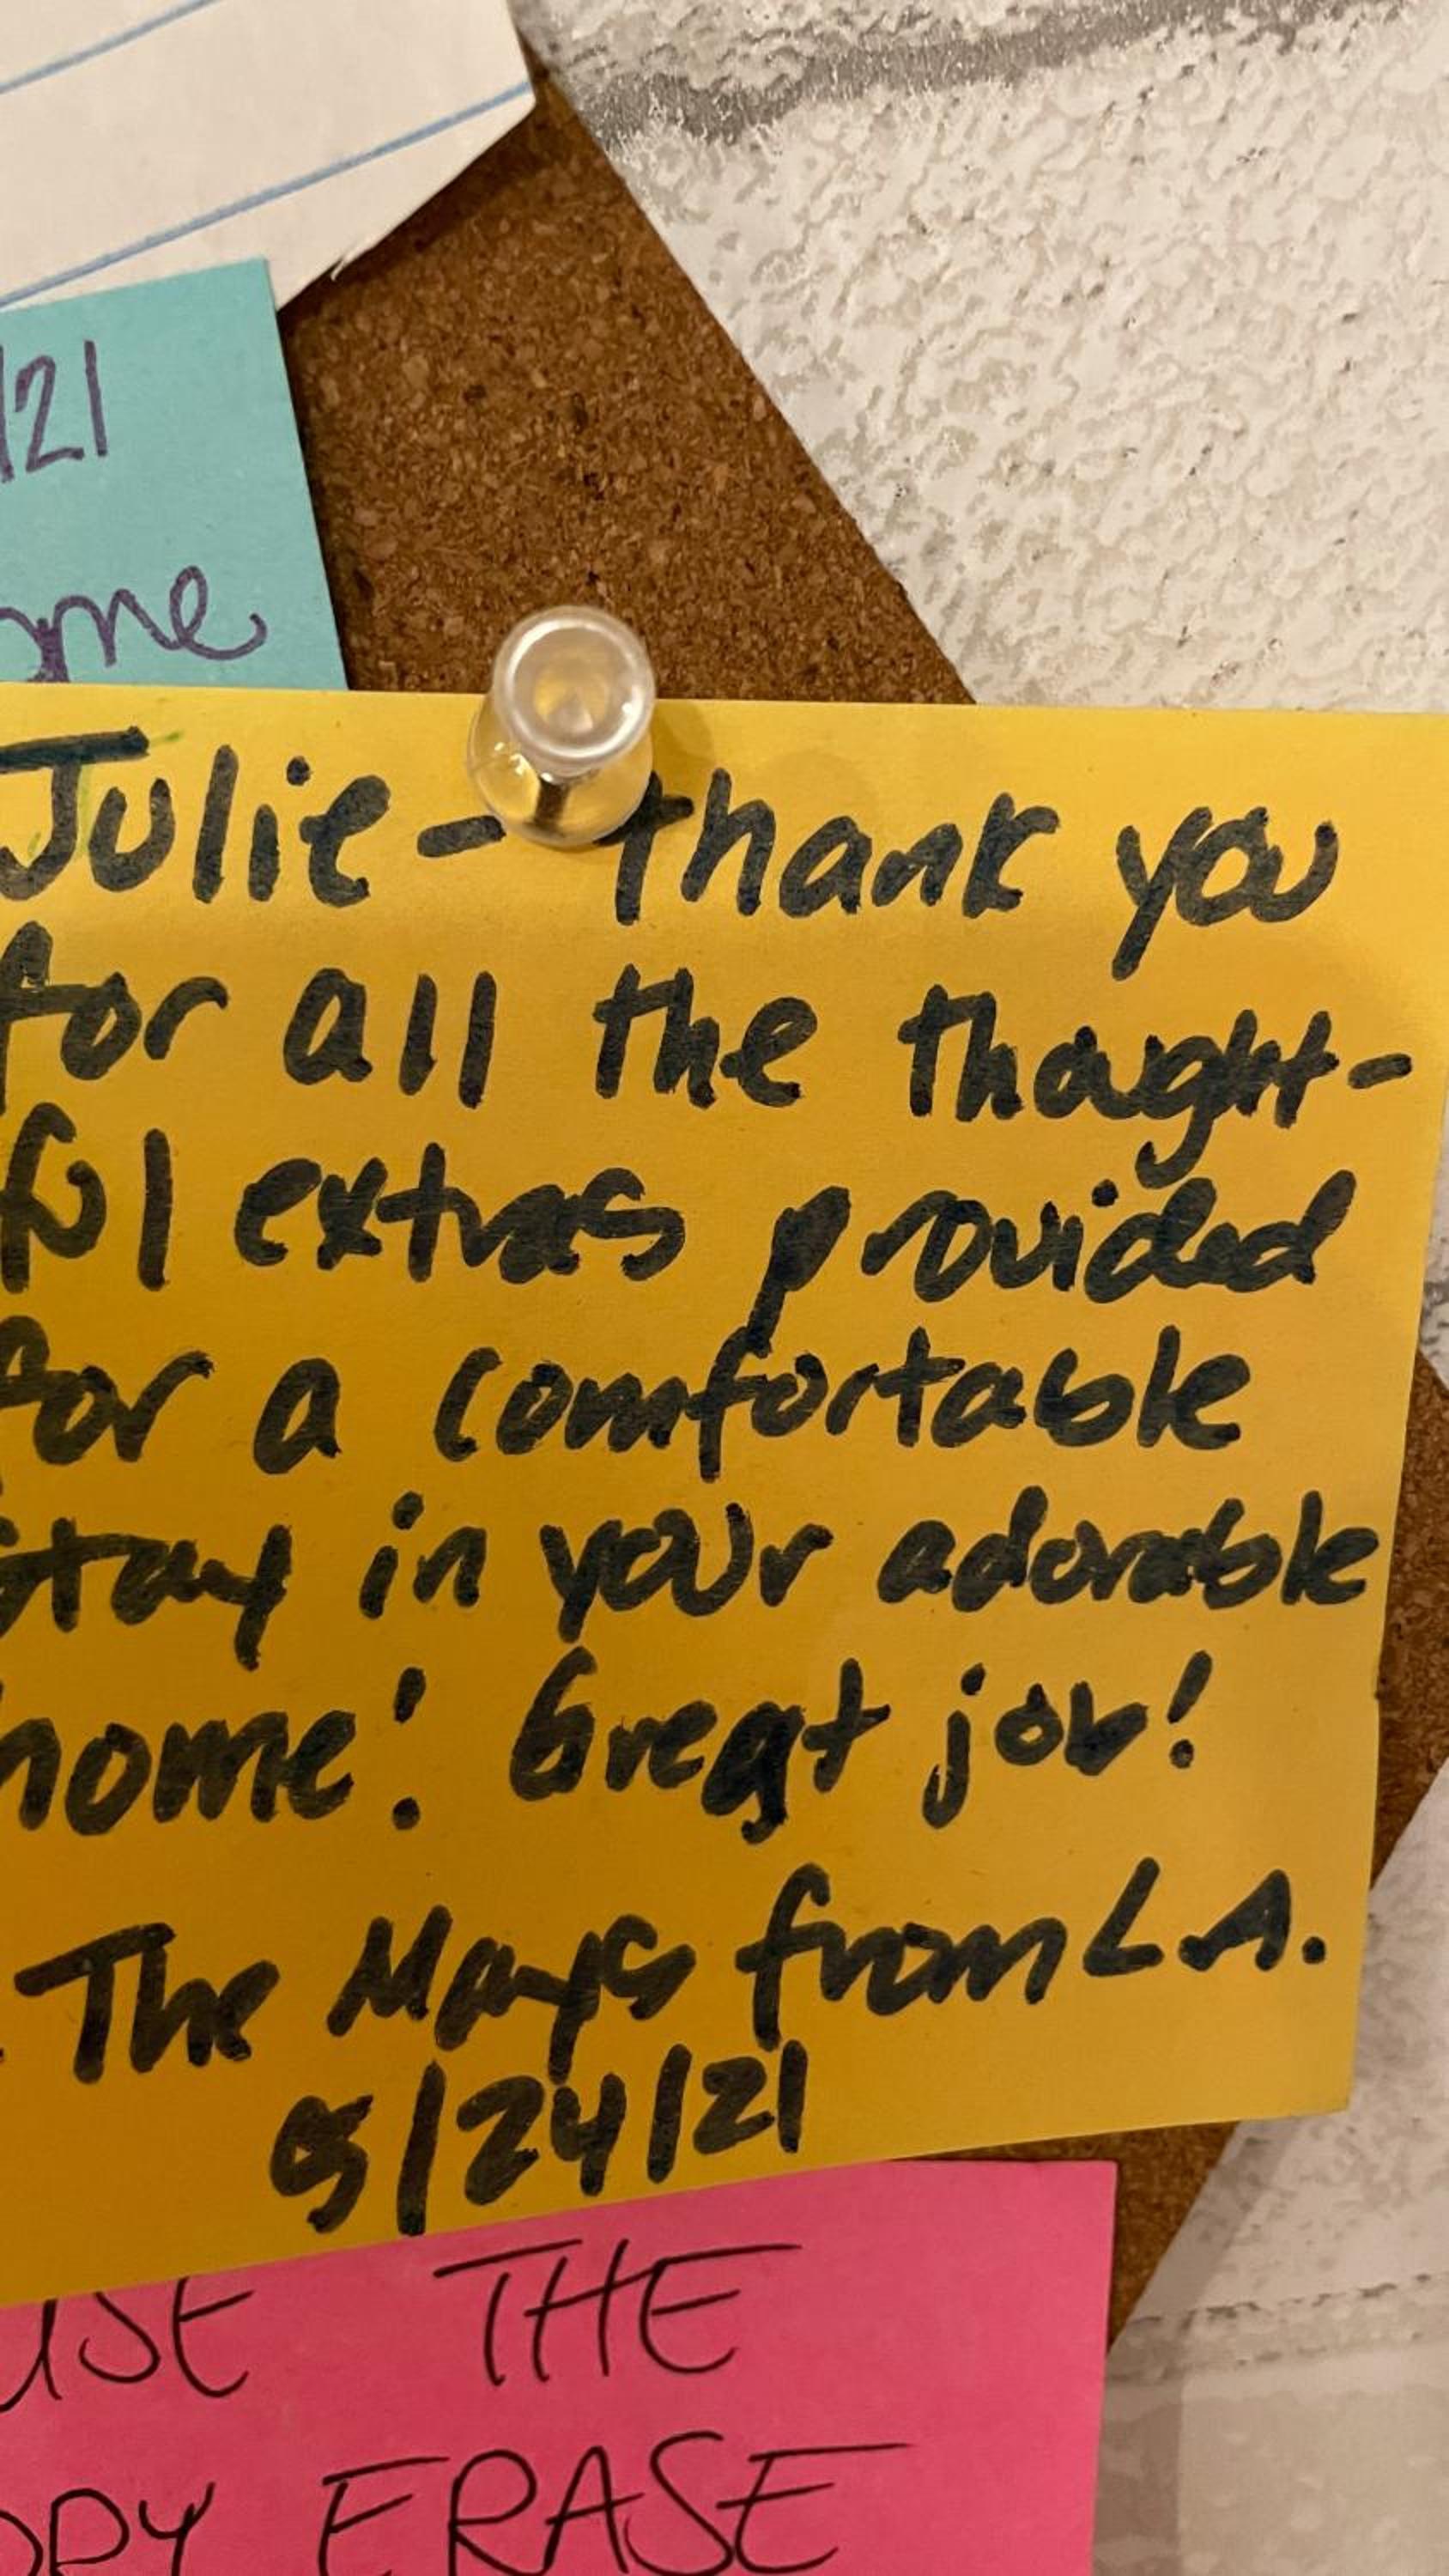 /21
ome
Julie - thank you
for all the thought-
ful extras provided
for a comfortable
stay in your adorable
home! Great job!
The Mays from L.A.
5/24/21
USE THE
DRY ERASE